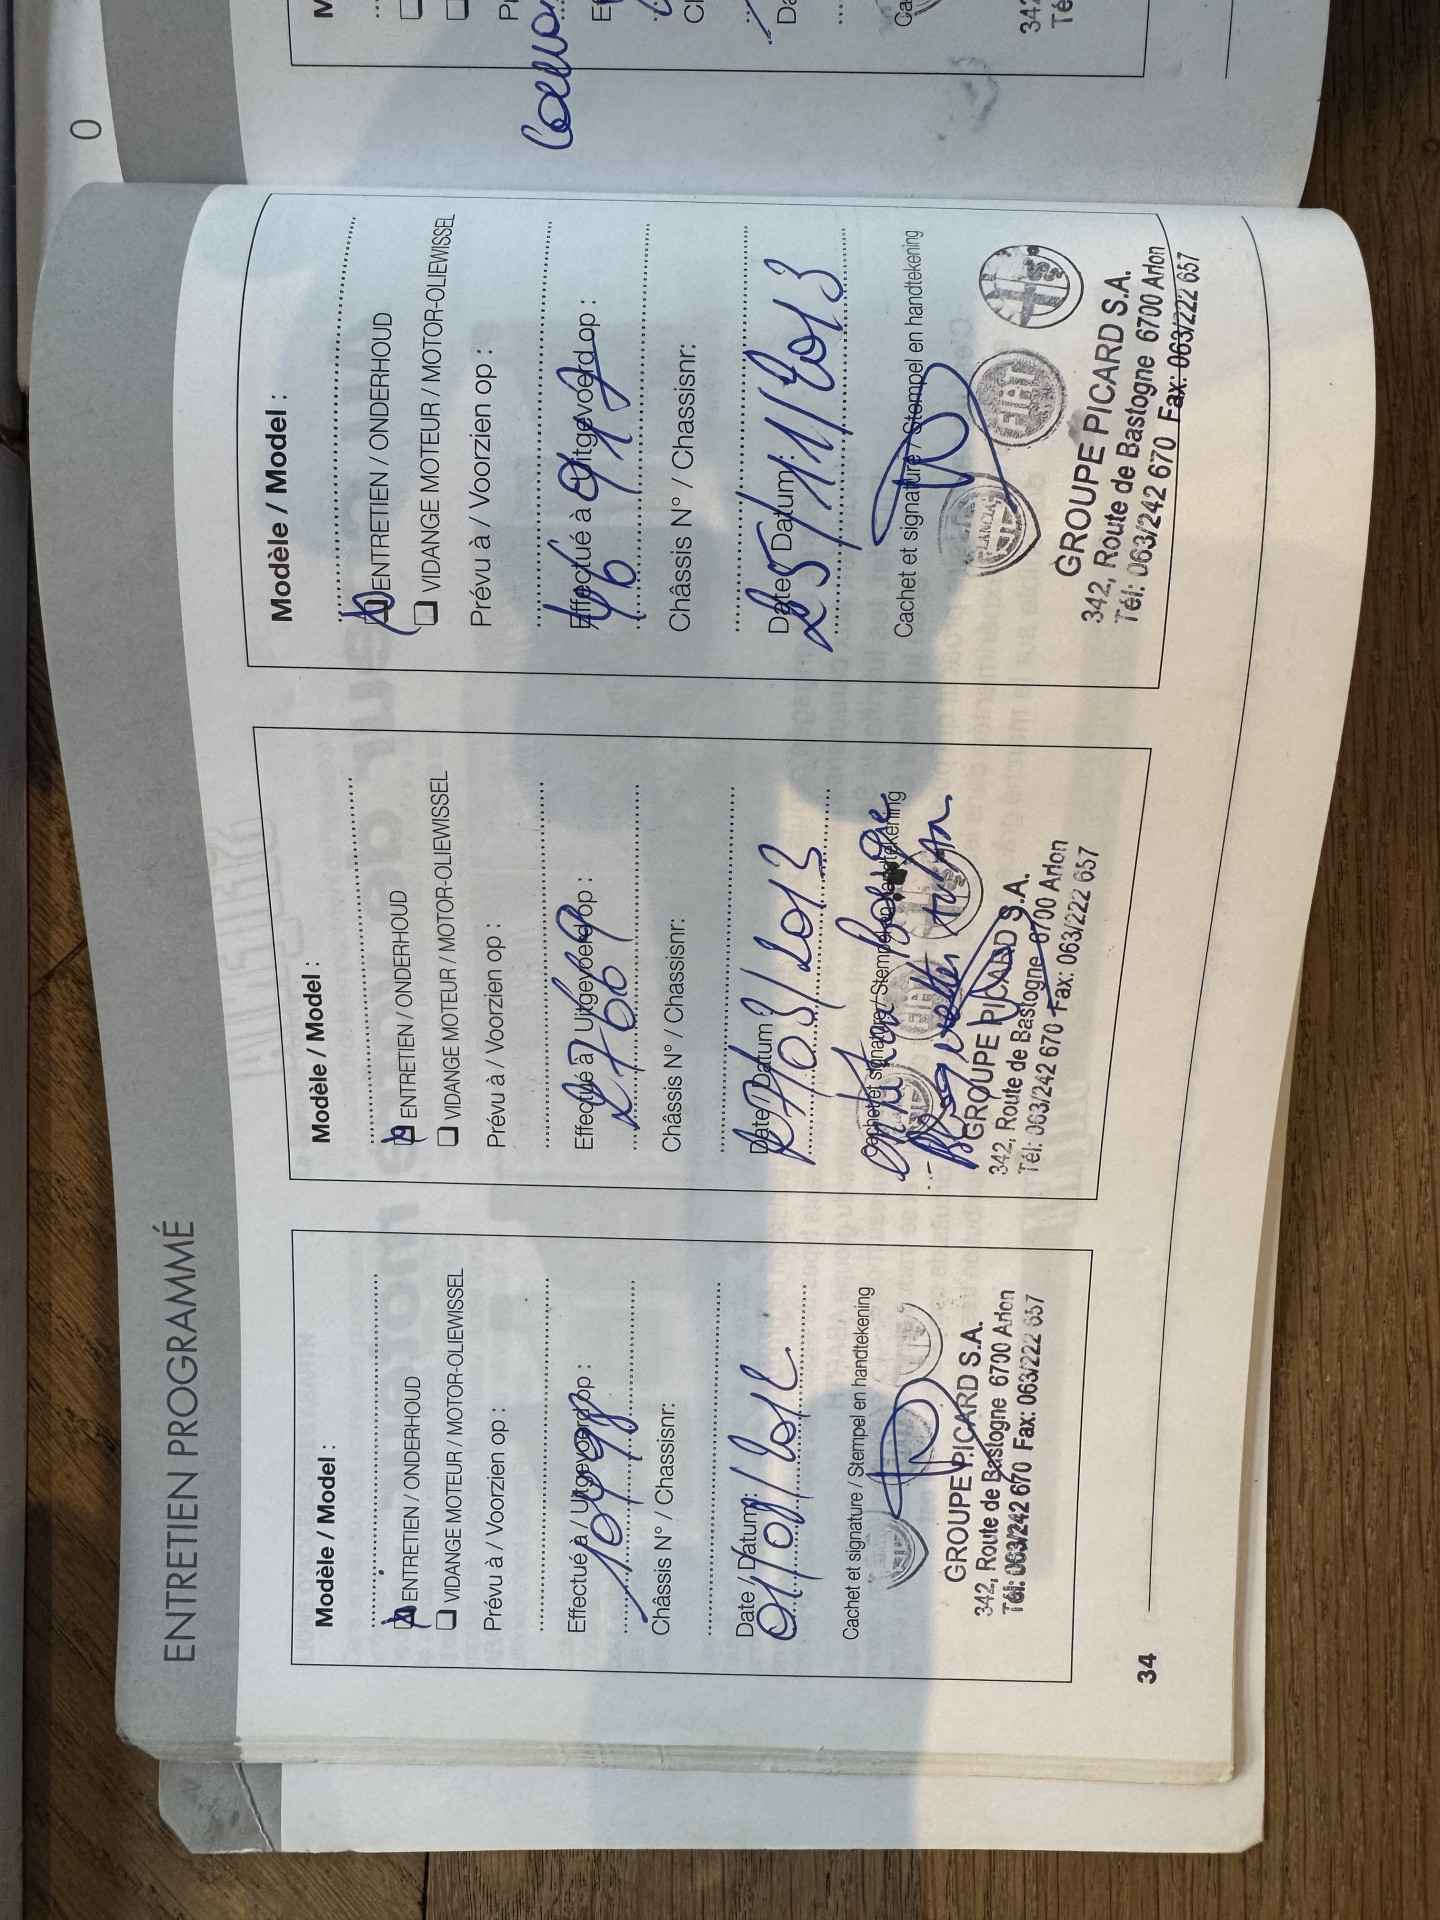 ENTRETIEN PROGRAMMÉ
Modèle / Model :
ENTRETIEN / ONDERHOUD
VIDANGE MOTEUR / MOTOR-OLIEWISSEL
Prévu à / Voorzien op :
Effectué à / Uitgevoerd op :
Châssis N° / Chassisnr:
Date / Datum :
01/08/2012
Cachet et signature / Stempel en handtekening
GROUPE PICARD S.A.
342, Route de Bastogne 6700 Arlon
Tél: 063/242 670 Fax: 063/222 657
Modèle / Model :
ENTRETIEN / ONDERHOUD
VIDANGE MOTEUR / MOTOR-OLIEWISSEL
Prévu à / Voorzien op :
Effectué à / Uitgevoerd op :
27669
Châssis N° / Chassisnr:
Date / Datum :
27/03/2013
Cachet et signature / Stempel en handtekening
GROUPE PICARD S.A.
342, Route de Bastogne 6700 Arlon
Tél: 063/242 670 Fax: 063/222 657
Modèle / Model :
ENTRETIEN / ONDERHOUD
VIDANGE MOTEUR / MOTOR-OLIEWISSEL
Prévu à / Voorzien op :
Effectué à / Uitgevoerd op :
Châssis N° / Chassisnr:
Date / Datum :
25/11/2013
Cachet et signature / Stempel en handtekening
LANCIA
FIAT
GROUPE PICARD S.A.
342, Route de Bastogne 6700 Arlon
Tél: 063/242 670 Fax: 063/222 657
34